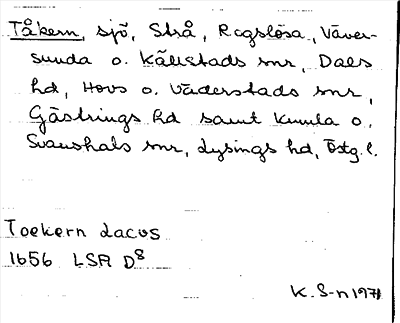 Tåkern, sjö, Strå, Rogslösa, Väver-
sunda o. Källstads snr, Dals
hd, Hovs o. Väderstads snr,
Göstrings hd samt Kumla o.
Svanshals snr, Lysings hd, Östg. l.
Toekern Lacus
1656 LSA D8
K. S-n 1971